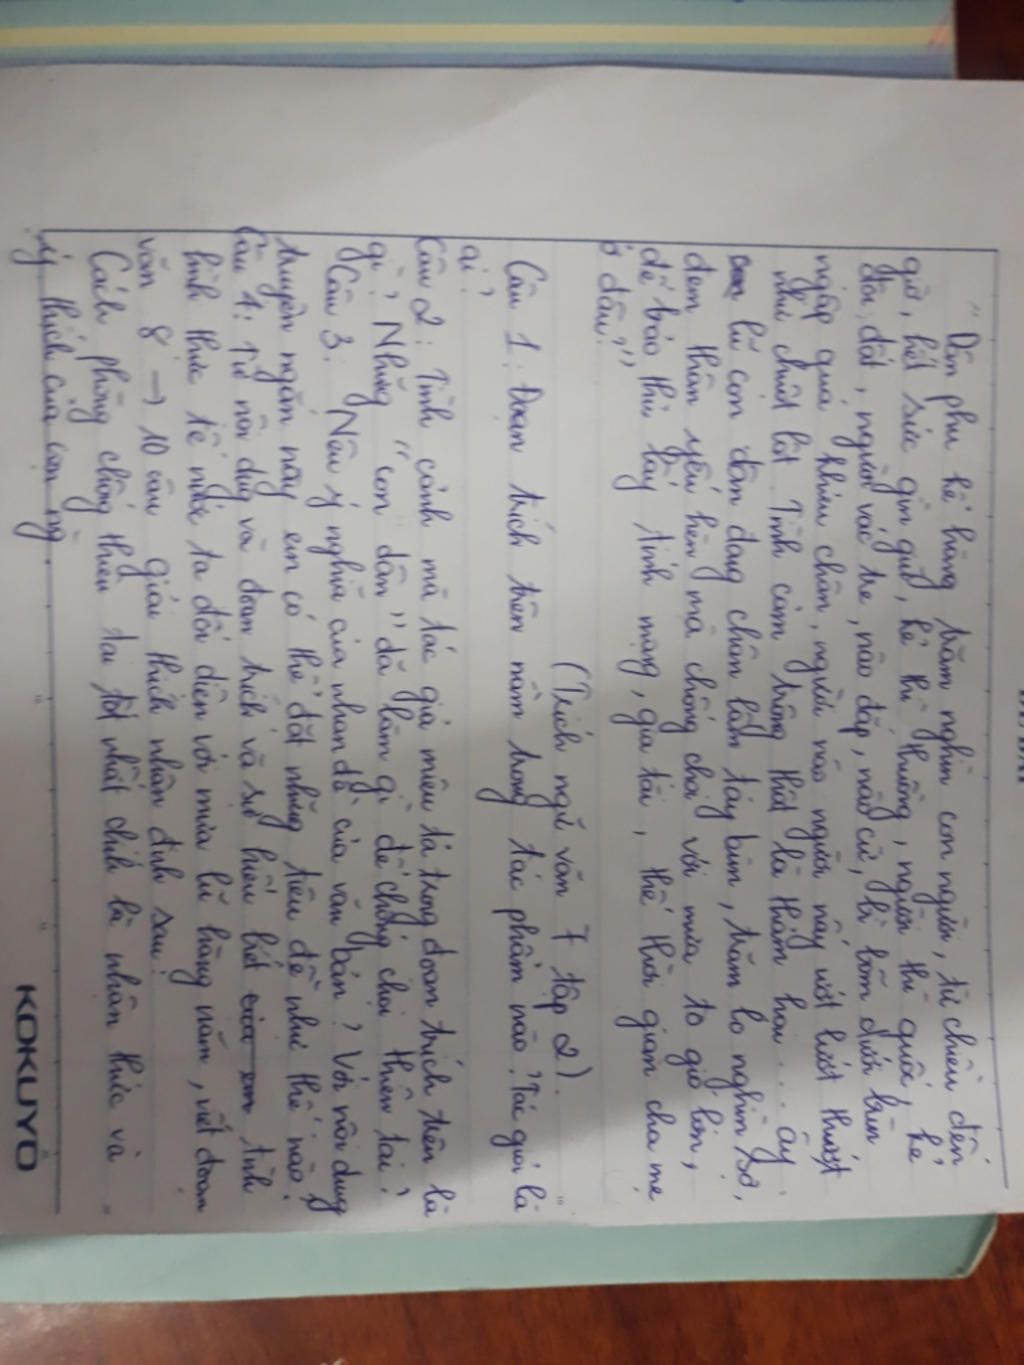 "Dân phu kể hàng trăm nghìn con người, từ chiều đến
giờ, hết sức gìn giữ, kẻ thì thuổng, người thì quốc, kẻ
đội đất, người vác tre, nào đắp, nào cừ, bì bõm dưới bùn
ngập quá khỉu chân, người nào người nấy ướt lướt thướt
như chuột lột. Tình cảnh trông thật là thảm hại... ấy
lũ con dân đang chân lấm tay bùn, trăm lo nghìn sợ,
đem thân yếu hèn mà chống chọi với mưa to gió lớn,
để bảo thủ lấy tính mạng, gia tài, thế thời gian cha mẹ
ở đâu?"
(Trích ngữ văn 7 tập 2).
Câu 1: Đoạn trích trên nằm trong tác phẩm nào? Tác giả là
ai?
Câu 2: Tình cảnh mà tác giả miêu tả trong đoạn trích trên là
gì? Những "con dân" đã làm gì để chống chọi thiên tai?
Câu 3: Nêu ý nghĩa của nhan đề của văn bản? Với nội dung
truyện ngắn này em có thể đặt những tiêu đề như thế nào?
Câu 4: Từ nội dung và đoạn trích và sự hiểu biết tình
hình thực tế nước ta đối diện với mưa lũ hàng năm, viết đoạn
văn 8 → 10 câu giải thích nhận định sau:
Cách phòng chống thiên tai tốt nhất chính là nhận thức và
ý thức của con ng "
KOKUYO